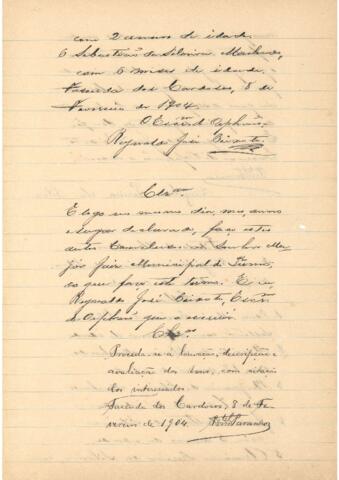 com 2 annos de idade.
6 Sebastião da Silveira Machado,
com 6 mezes de idade.
Fazenda dos Cardosos, 8 de
Fevereiro de 1904.
O Escrm. d'Orphãos
Reynaldo José
Clsm
E logo no mesmo dia, mez, anno
e lugar declarado, faço estes
autos conclusos ao Senhor Ma-
jor Juiz Municipal do Termo,
do que faço este termo. E eu
Reynaldo José Escrm
d'Orphãos que o escrevi.
Clsos
Proceda-se a louvação, descripção e
avaliação dos bens, com citação
dos interessados.
Fazenda dos Cardosos, 8 de Fe-
vereiro de 1904.